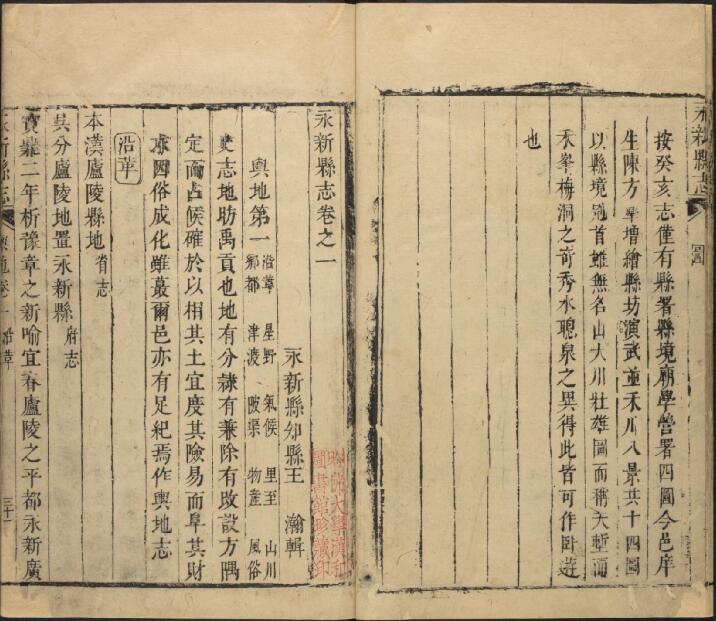 永新縣志
圖
按癸亥志僅有縣署縣境廟學營署四圖今邑庠
生陳方壆增繪縣坊演武並禾川八景共十四圖
以縣境冠首雖無名山大川壯雄圖而稱天塹而
禾峯梅洞之奇秀水聰泉之異得此皆可作臥遊
也
永新縣志卷之一
永新縣知縣王瀚輯
輿地第一 沿革 星野 氣候 里至 山川
鄉都 津渡 陂渠 物產 風俗
史志地昉禹貢也地有分隸有兼除有攺設方隅
定而占候確於以相其土宜度其險易而阜其財
求因俗成化雖蕞爾邑亦有足紀焉作輿地志
沿革
本漢廬陵縣地 省志
吳分廬陵地置永新縣 府志
寶鼎二年析豫章之新喻宜春廬陵之平都永新廣
永新縣志
輿地卷一 沿革
三十一
哈佛大學漢和
圖書館珍藏印